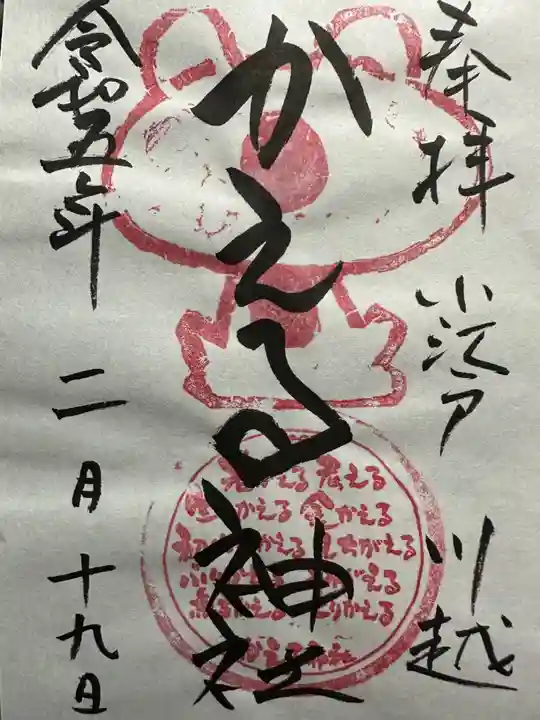 奉拝 小江戸 川越
かえる神社
令和五年 二月十九日
考える
かえる 金かえる
ちがえる
かえる
かえる
かえる神社